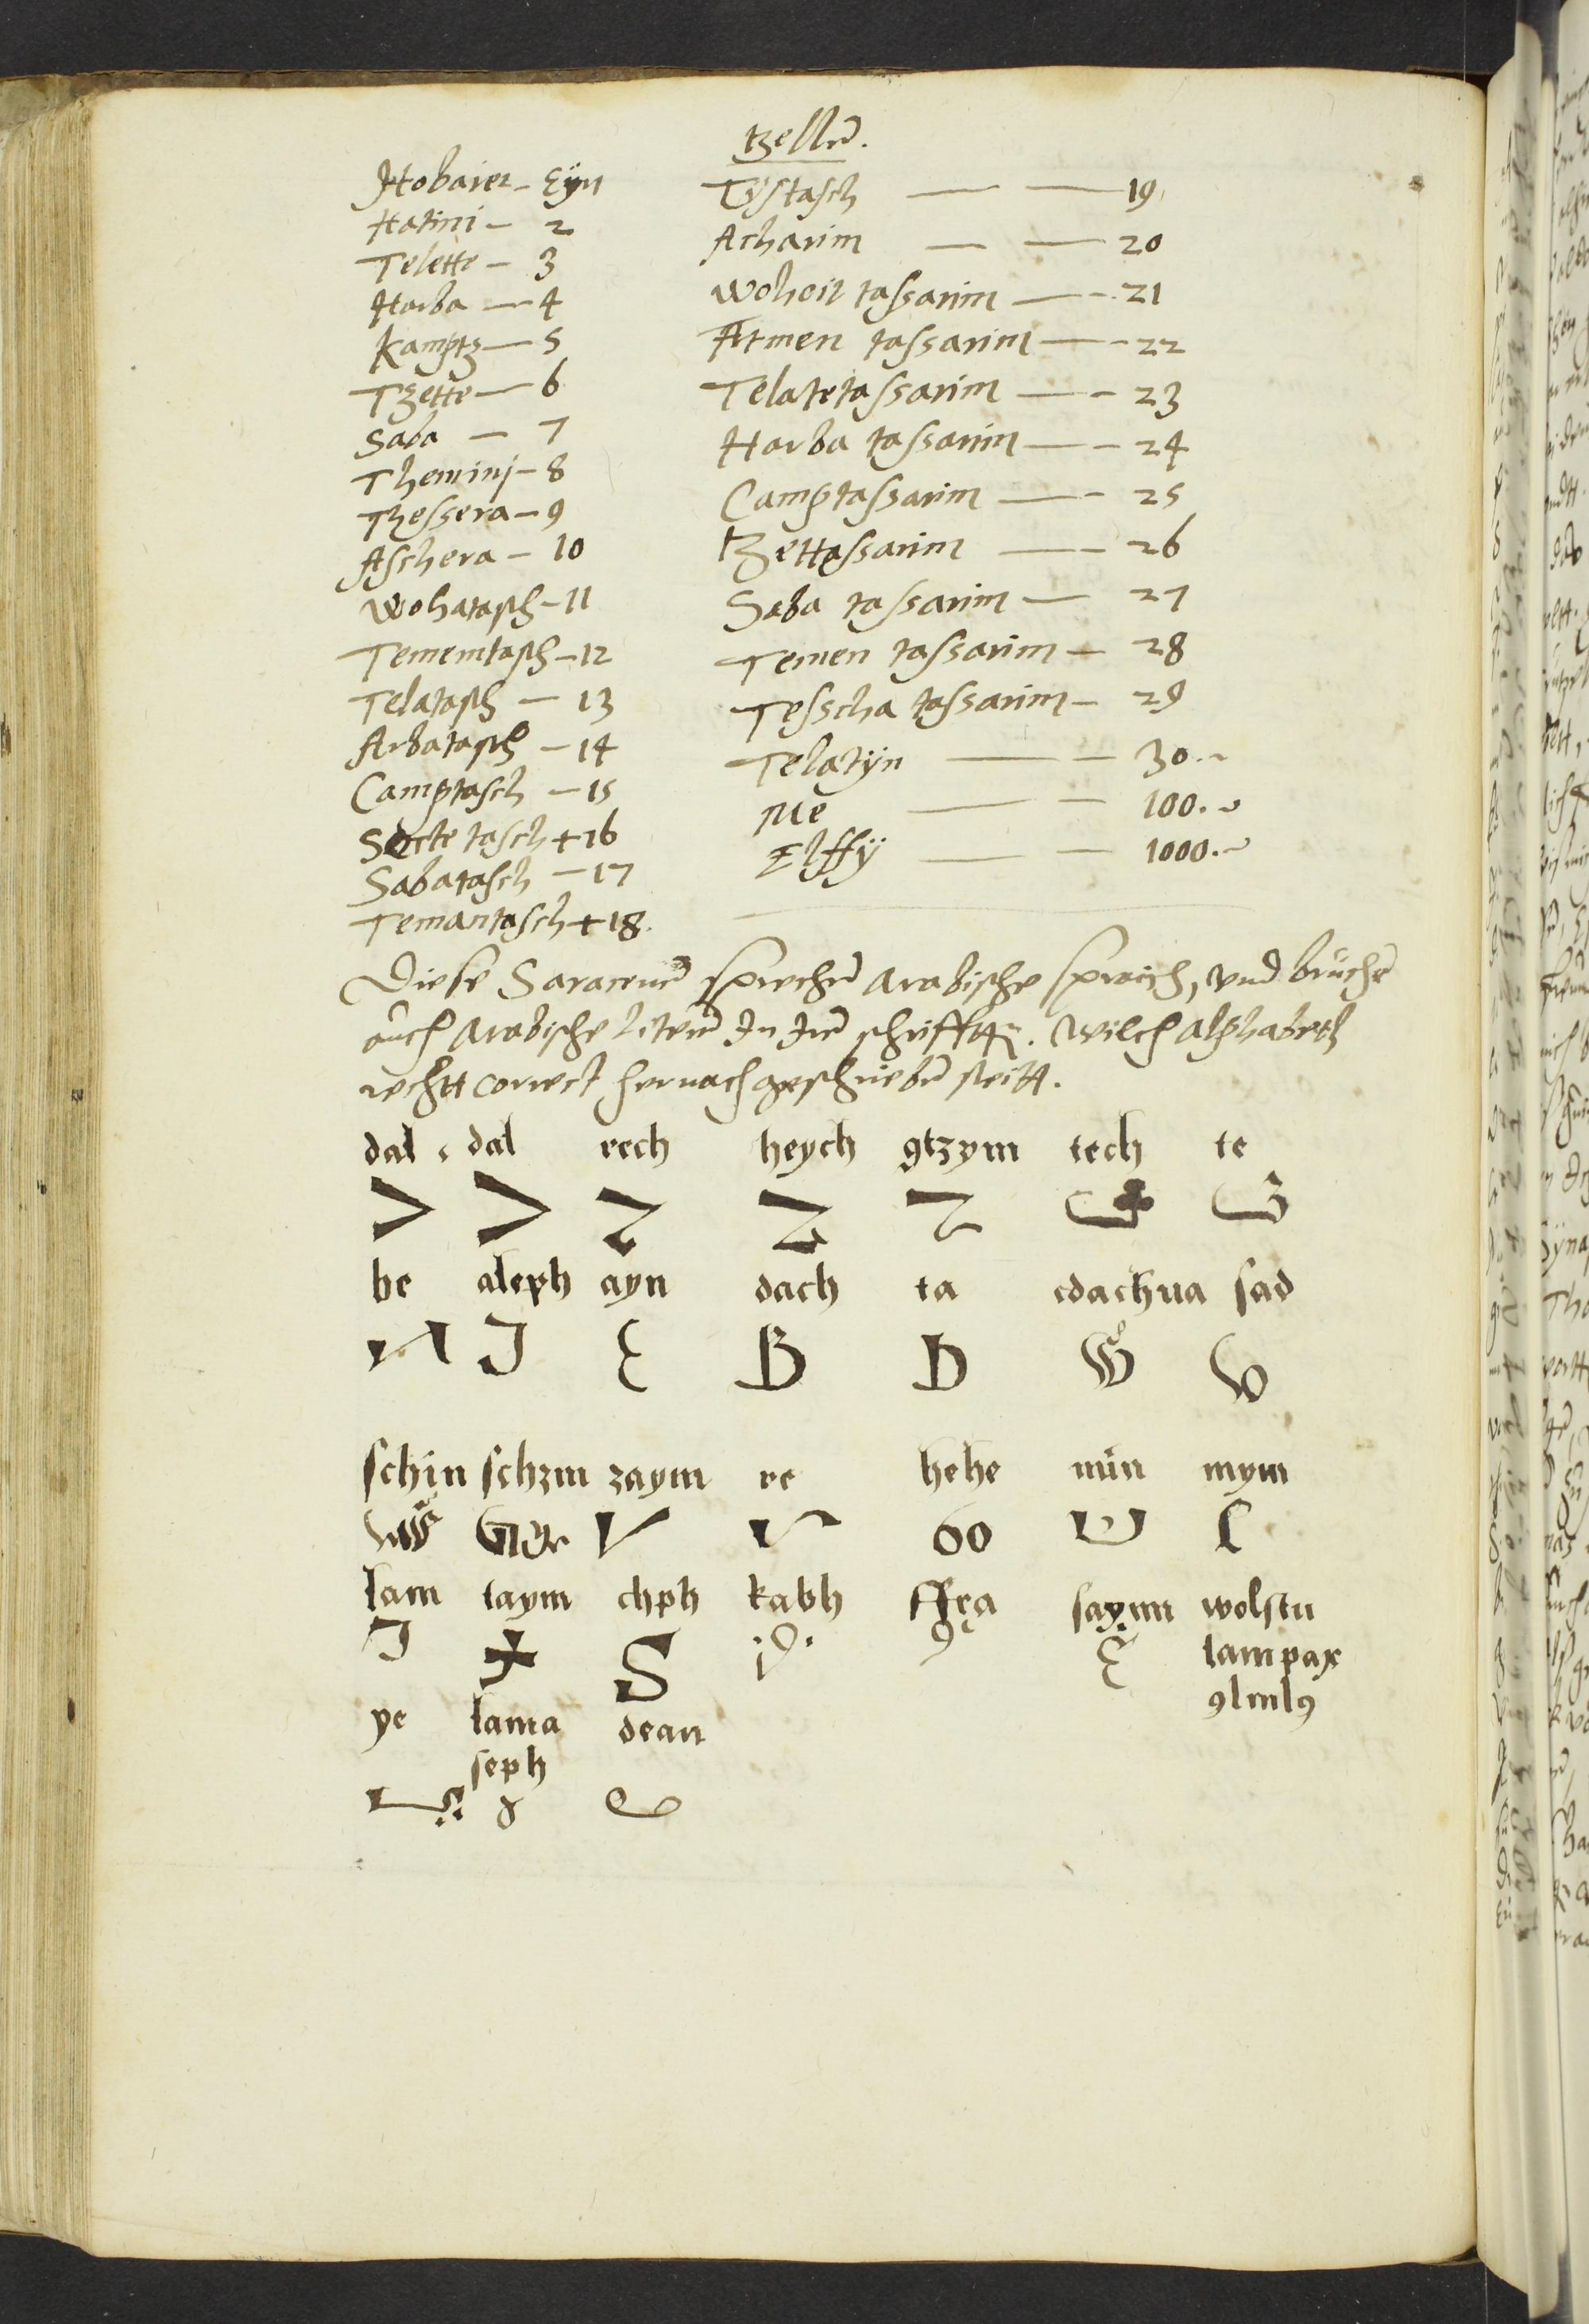 tzellen.
Hobaiet - Eÿn
Hatini - 2
Telette - 3
Harba - 4
Kamptz - 5
Tzette - 6
Saba - 7
Themini - 8
Thessera - 9
Aschera - 10
Wohatasch - 11
Tememtasch - 12
Telatasch - 13
Arbatasch - 14
Camptasch - 15
Sectetasch + 16
Sabatasch - 17
Temantasch + 18.
Tÿstasch — — 19
Acharim — — 20
Woheit tassarim — - 21
Atmen tassarim — - 22
Telatetassarim — - 23
Harba tassarim — - 24
Camptassarim — - 25
tzettassarim — - 26
Saba tassarim — 27
Temen tassarim — 28
Tesscha tassarim - 29
Telatÿn — - 30.
Me — - 100.
Elffÿ — - 1000.
Diese Saracenen sprechen Arabische spraich, und bruchen
auch Arabische literen In Iren schrifften. Wilch alphabeth
rechtt correct hernach geschrieben steitt.
dal . dal rech heych gtzym tech te
be aleph ayn dach ta cdachua sad
schin schzm zaym re hehe nun mym
lam taym chph kabh ffea saymn wolstu
lampax
9lml9
ye lama dean
seph